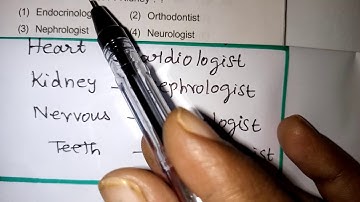 Kidney
(1) Endocrinolog (2) Orthodontist
(3) Nephrologist (4) Neurologist
Heart ardiologist
Kidney - ephrologist
Nervous logist
Teeth - ist